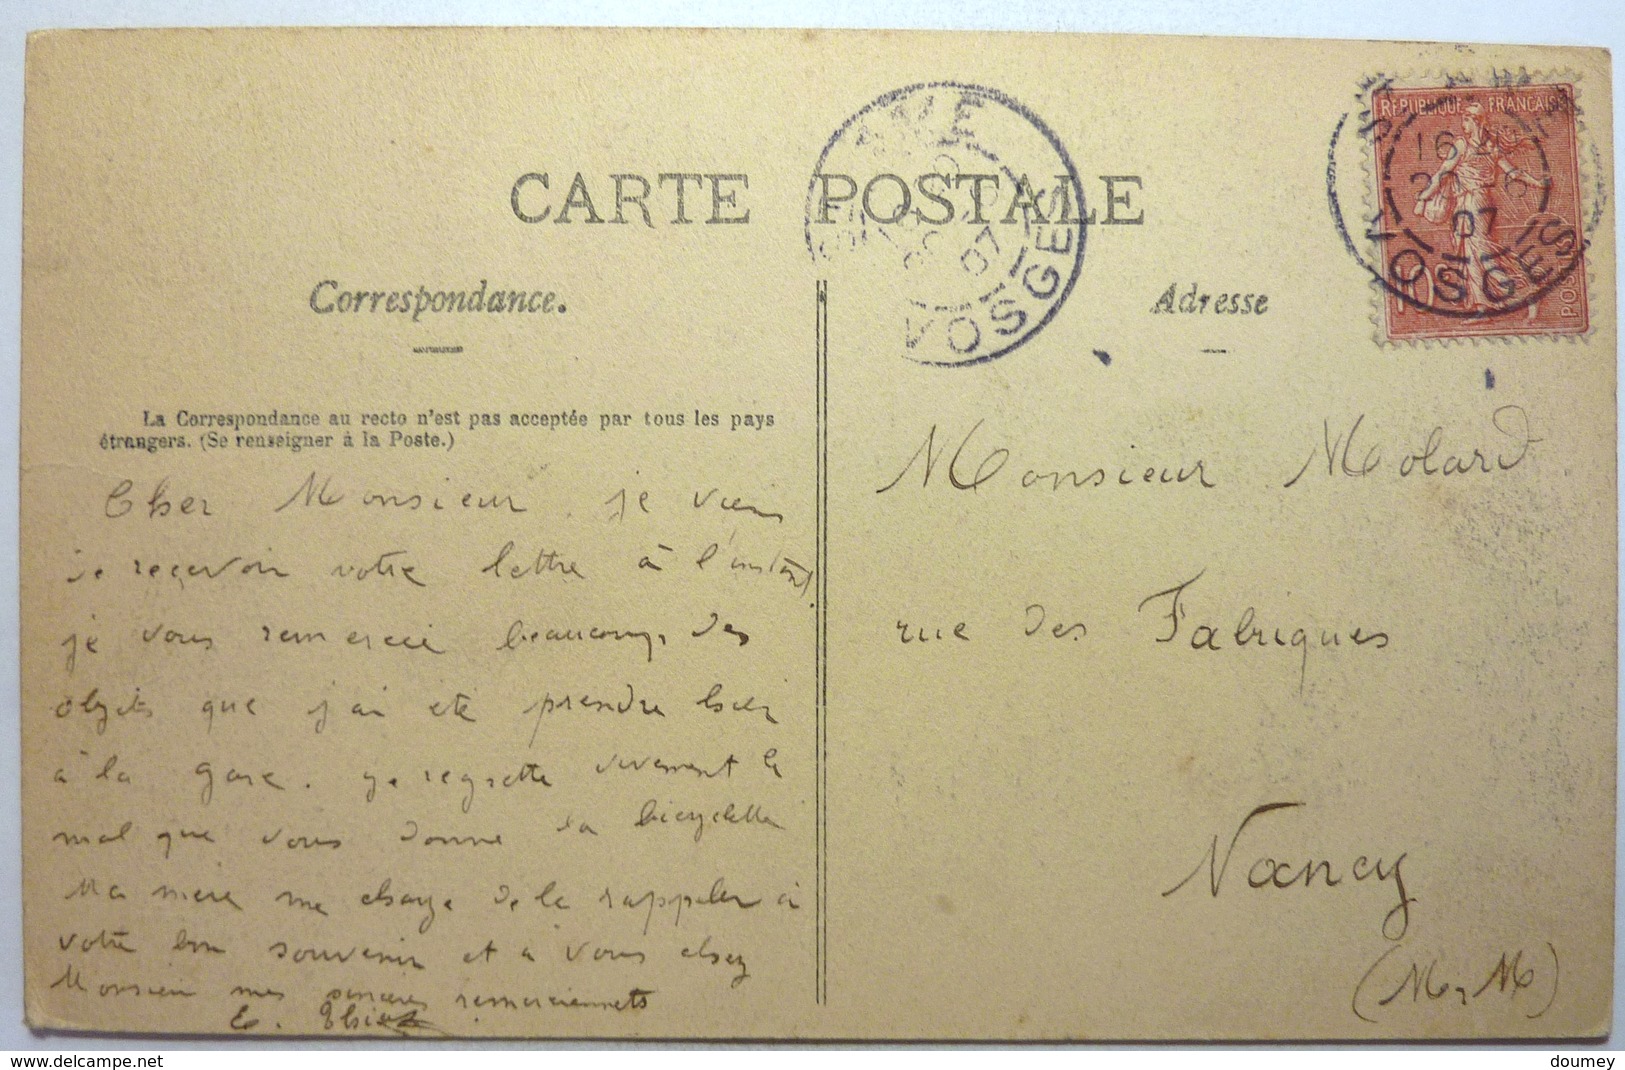 CARTE POSTALE
Correspondance.
La Correspondance au recto n'est pas acceptée par tous les pays
étrangers. (Se renseigner à la Poste.)
Cher Monsieur, je viens
de reçevoir votre lettre à l'instant,
je vous remercie beaucoup, des
objets que j'ai été prendre hier
à la gare. Je regrette vivement le
mal que vous donne la bicyclette
Ma mère me charge de la rappeler à
votre bon souvenir et à vous cher
Monsieur mes sincères remerciements
E.
Adresse
REPUBLIQUE FRANÇAISE
16
07
VOSGES
07
VOSGES
Monsieur Molard
rue des Fabriques
Nancy
(M, M)
delcampe.net
doumey